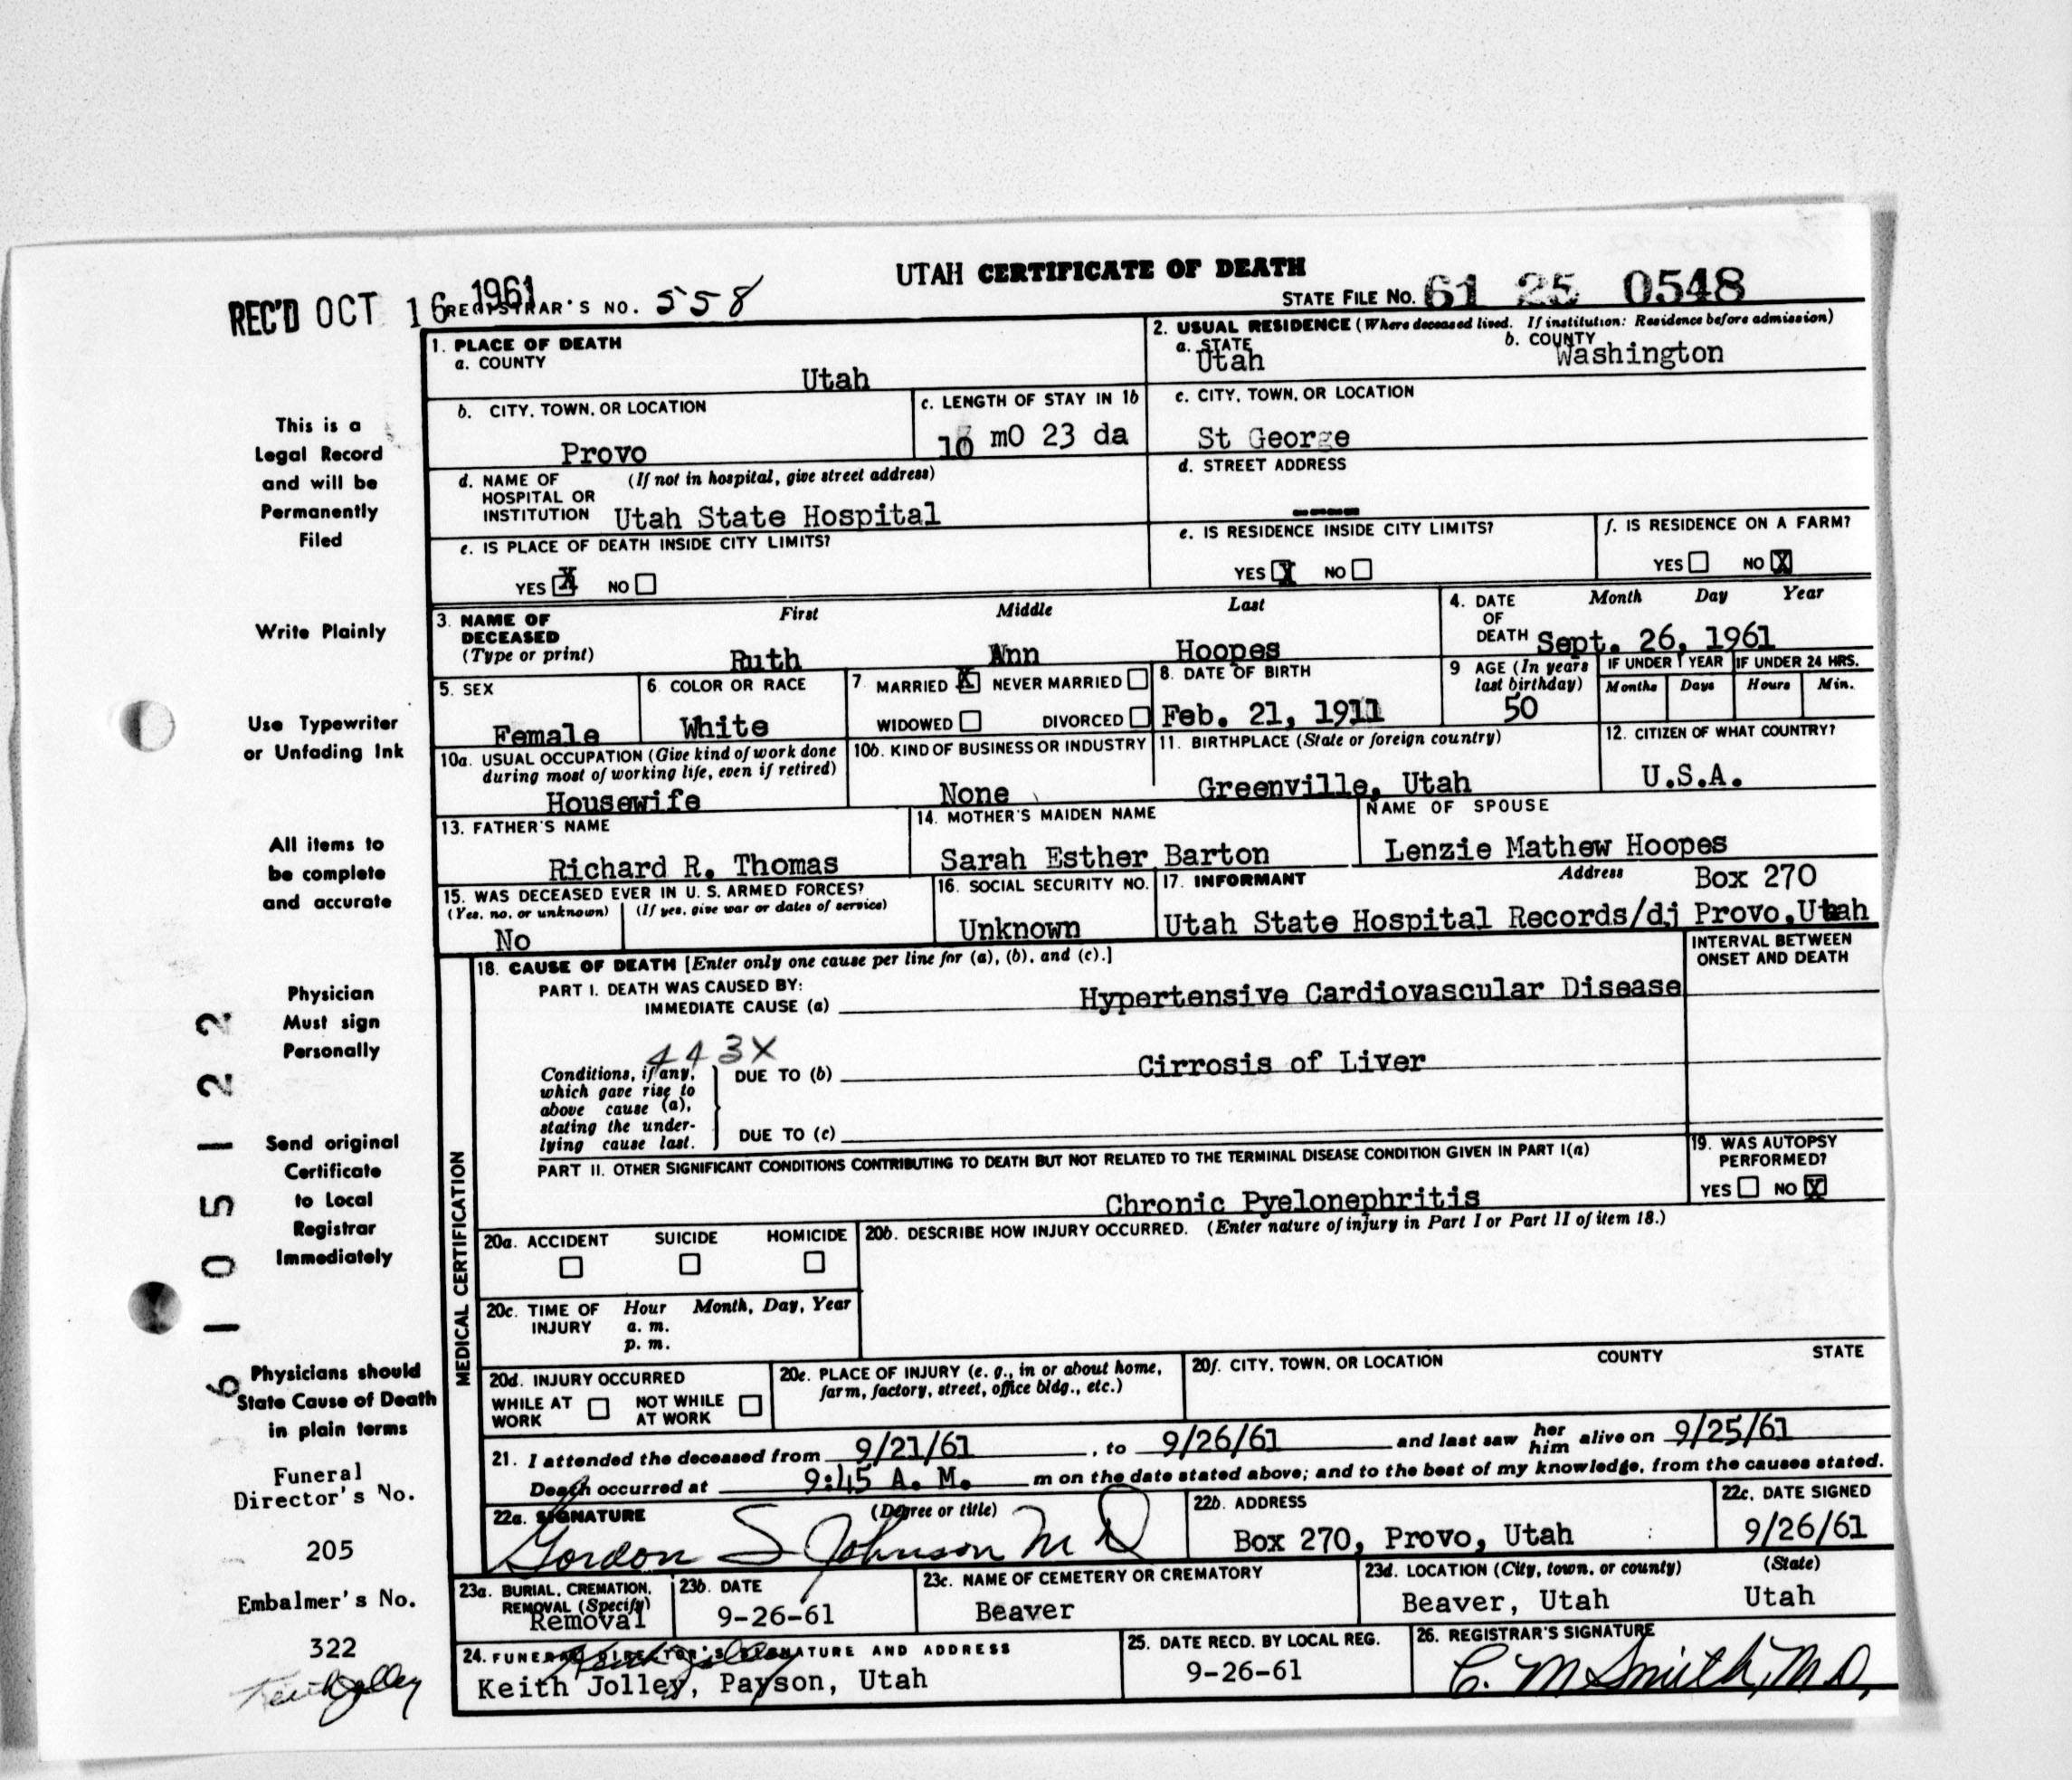 UTAH CERTIFICATE OF DEATH
REC'D OCT 16 1961
REGISTRAR'S NO. 558
STATE FILE NO. 61 25 0548
This is a
Legal Record
and will be
Permanently
Filed
Write Plainly
Use Typewriter
or Unfading Ink
All items to
be complete
and accurate
Physician
Must sign
Personally
Send original
Certificate
to Local
Registrar
Immediately
Physicians should
State Cause of Death
in plain terms
Funeral
Director's No.
205
Embalmer's No.
322
Keith Jolley
6105122
1. PLACE OF DEATH
a. COUNTY
Utah
2. USUAL RESIDENCE (Where deceased lived. If institution: Residence before admission)
a. STATE
Utah
b. COUNTY
Washington
b. CITY, TOWN, OR LOCATION
Provo
c. LENGTH OF STAY IN 1b
10 mO 23 da
c. CITY, TOWN, OR LOCATION
St George
d. NAME OF HOSPITAL OR INSTITUTION (If not in hospital, give street address)
Utah State Hospital
d. STREET ADDRESS
----
e. IS PLACE OF DEATH INSIDE CITY LIMITS?
YES X NO
e. IS RESIDENCE INSIDE CITY LIMITS?
YES X NO
f. IS RESIDENCE ON A FARM?
YES NO X
3. NAME OF DECEASED (Type or print)
First Middle Last
Ruth Ann Hoopes
4. DATE OF DEATH
Month Day Year
Sept. 26, 1961
5. SEX
Female
6. COLOR OR RACE
White
7. MARRIED X NEVER MARRIED
WIDOWED DIVORCED
8. DATE OF BIRTH
Feb. 21, 1911
9 AGE (In years last birthday)
50
IF UNDER 1 YEAR
Months Days
IF UNDER 24 HRS.
Hours Min.
10a. USUAL OCCUPATION (Give kind of work done during most of working life, even if retired)
Housewife
10b. KIND OF BUSINESS OR INDUSTRY
None
11. BIRTHPLACE (State or foreign country)
Greenville, Utah
12. CITIZEN OF WHAT COUNTRY?
U.S.A.
13. FATHER'S NAME
Richard R. Thomas
14. MOTHER'S MAIDEN NAME
Sarah Esther Barton
NAME OF SPOUSE
Lenzie Mathew Hoopes
15. WAS DECEASED EVER IN U. S. ARMED FORCES?
(Yes, no, or unknown) (If yes, give war or dates of service)
No
16. SOCIAL SECURITY NO.
Unknown
17. INFORMANT Address
Box 270
Utah State Hospital Records/dj Provo,Utah
MEDICAL CERTIFICATION
18. CAUSE OF DEATH [Enter only one cause per line for (a), (b), and (c).]
INTERVAL BETWEEN ONSET AND DEATH
PART I. DEATH WAS CAUSED BY:
IMMEDIATE CAUSE (a) Hypertensive Cardiovascular Disease
443X
Conditions, if any, which gave rise to above cause (a), stating the underlying cause last.
DUE TO (b) Cirrosis of Liver
DUE TO (c)
PART II. OTHER SIGNIFICANT CONDITIONS CONTRIBUTING TO DEATH BUT NOT RELATED TO THE TERMINAL DISEASE CONDITION GIVEN IN PART I(a)
Chronic Pyelonephritis
19. WAS AUTOPSY PERFORMED?
YES NO X
20a. ACCIDENT SUICIDE HOMICIDE
20b. DESCRIBE HOW INJURY OCCURRED. (Enter nature of injury in Part I or Part II of item 18.)
20c. TIME OF INJURY Hour Month, Day, Year
a. m.
p. m.
20d. INJURY OCCURRED
WHILE AT WORK NOT WHILE AT WORK
20e. PLACE OF INJURY (e. g., in or about home, farm, factory, street, office bldg., etc.)
20f. CITY, TOWN, OR LOCATION COUNTY STATE
21. I attended the deceased from 9/21/61, to 9/26/61 and last saw her him alive on 9/25/61
Death occurred at 9:45 A. M. m on the date stated above; and to the best of my knowledge, from the causes stated.
22a. SIGNATURE (Degree or title)
Gordon S Johnson M D
22b. ADDRESS
Box 270, Provo, Utah
22c. DATE SIGNED
9/26/61
23a. BURIAL, CREMATION, REMOVAL (Specify)
Removal
23b. DATE
9-26-61
23c. NAME OF CEMETERY OR CREMATORY
Beaver
23d. LOCATION (City, town, or county) (State)
Beaver, Utah Utah
24. FUNERAL DIRECTOR'S SIGNATURE AND ADDRESS
Keith Jolley
Keith Jolley, Payson, Utah
25. DATE RECD. BY LOCAL REG.
9-26-61
26. REGISTRAR'S SIGNATURE
C. M Smith, M.D.